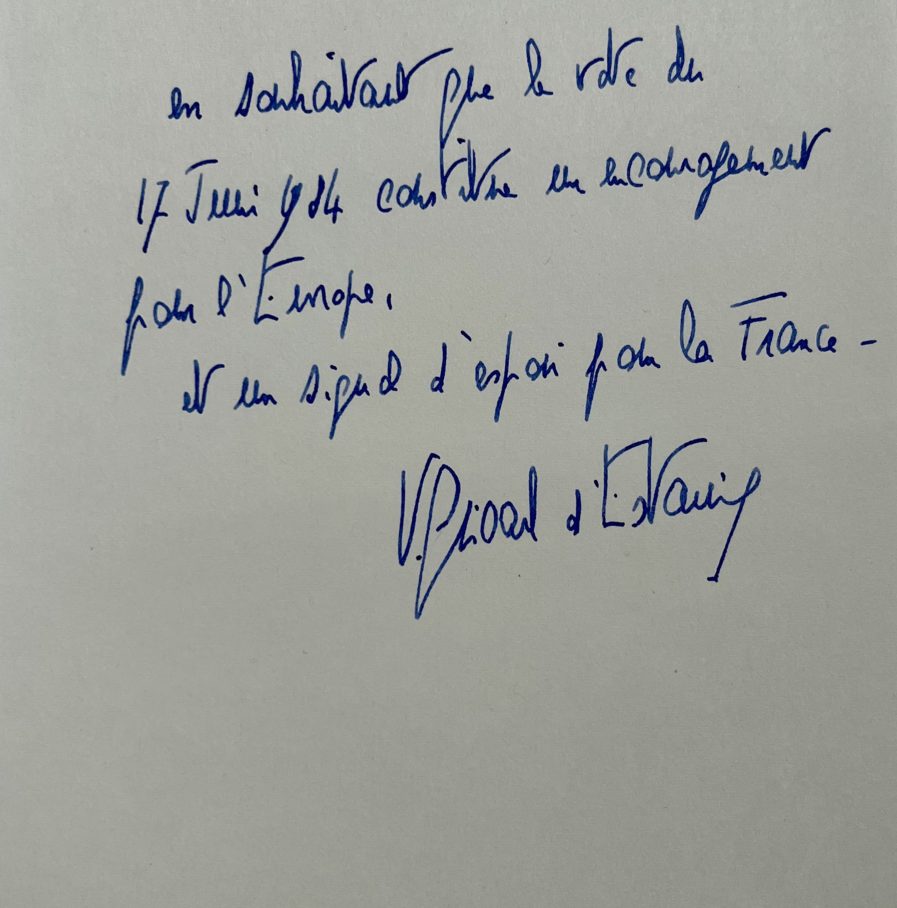 en souhaitant que le vote du
17 Juin 1984 constitue un encouragement
pour l'Europe,
et un signal d'espoir pour la France -
V. Giscard d'Estaing